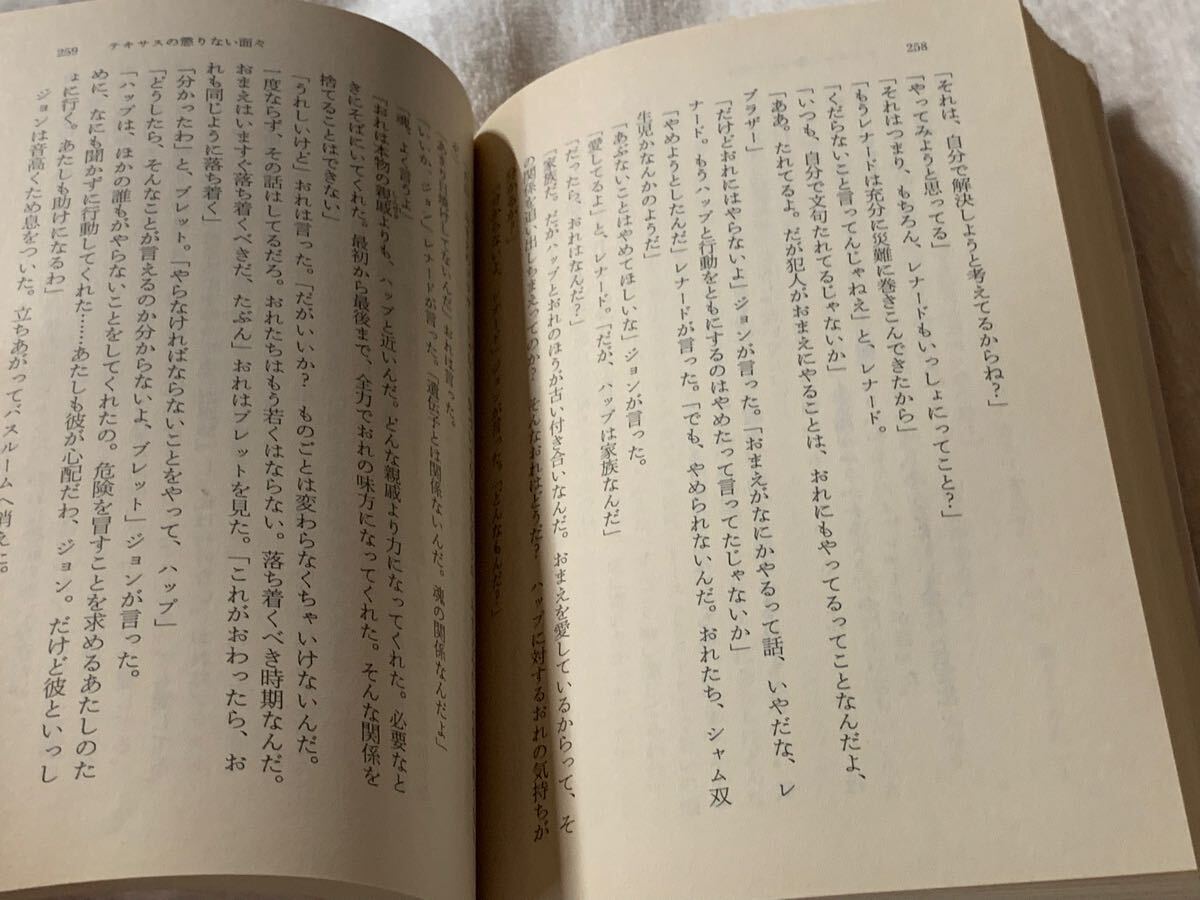 258
「それは、自分で解決しようと考えてるからね?」
「やってみようと思ってる」
「それはつまり、もちろん、レナードもいっしょにってこと?」
「もうレナードは充分に災難に巻きこんできたから」
「くだらないこと言ってんじゃねえ」と、レナード。
「いつも、自分で文句たれてるじゃないか」
「ああ。たれてるよ。だが犯人がおまえにやることは、おれにもやってるってことなんだよ、
ブラザー」
「だけどおれにはやらないよ」ジョンが言った。「おまえがなにかやるって話、いやだな、レ
ナード。もうハップと行動をともにするのはやめたって言ってたじゃないか」
「やめようとしたんだ」レナードが言った。「でも、やめられないんだ。おれたち、シャム双
生児かなんかのようだ」
「あぶないことはやめてほしいな」ジョンが言った。
「愛してるよ」と、レナード。「だが、ハップは家族なんだ」
「だったら、おれはなんだ?」
「家族だ。だがハップとおれのほうが古い付き合いなんだ。おまえを愛しているからって、そ
の関係を追い出しちまえってのか? そんなおれはどうだ? ハップに対するおれの気持ちが
259 テキサスの懲りない面々
「いいか、ジョン」レナードが言った。「遺伝子とは関係ないんだ。魂の関係なんだよ」
「魂、よく言うよ」
「おれは本物の親戚よりも、ハップと近いんだ。どんな親戚より力になってくれた。必要なと
きにそばにいてくれた。最初から最後まで、全力でおれの味方になってくれた。そんな関係を
捨てることはできない」
「うれしいけど」おれは言った。「だがいいか? ものごとは変わらなくちゃいけないんだ。
一度ならず、その話はしてるだろ。おれたちはもう若くはならない。落ち着くべき時期なんだ。
おまえはいますぐ落ち着くべきだ、たぶん」おれはブレットを見た。「これがおわったら、お
れも同じように落ち着く」
「分かったわ」と、ブレット。「やらなければならないことをやって、ハップ」
「どうしたら、そんなことが言えるのか分からないよ、ブレット」ジョンが言った。
「ハップは、ほかの誰もがやらないことをしてくれたの。危険を冒すことを求めるあたしのた
めに、なにも聞かずに行動してくれた……あたしも彼が心配だわ、ジョン。だけど彼といっし
ょに行く。あたしも助けになるわ」
ジョンは音高くため息をついた。立ちあがってバスルームへ消えた。